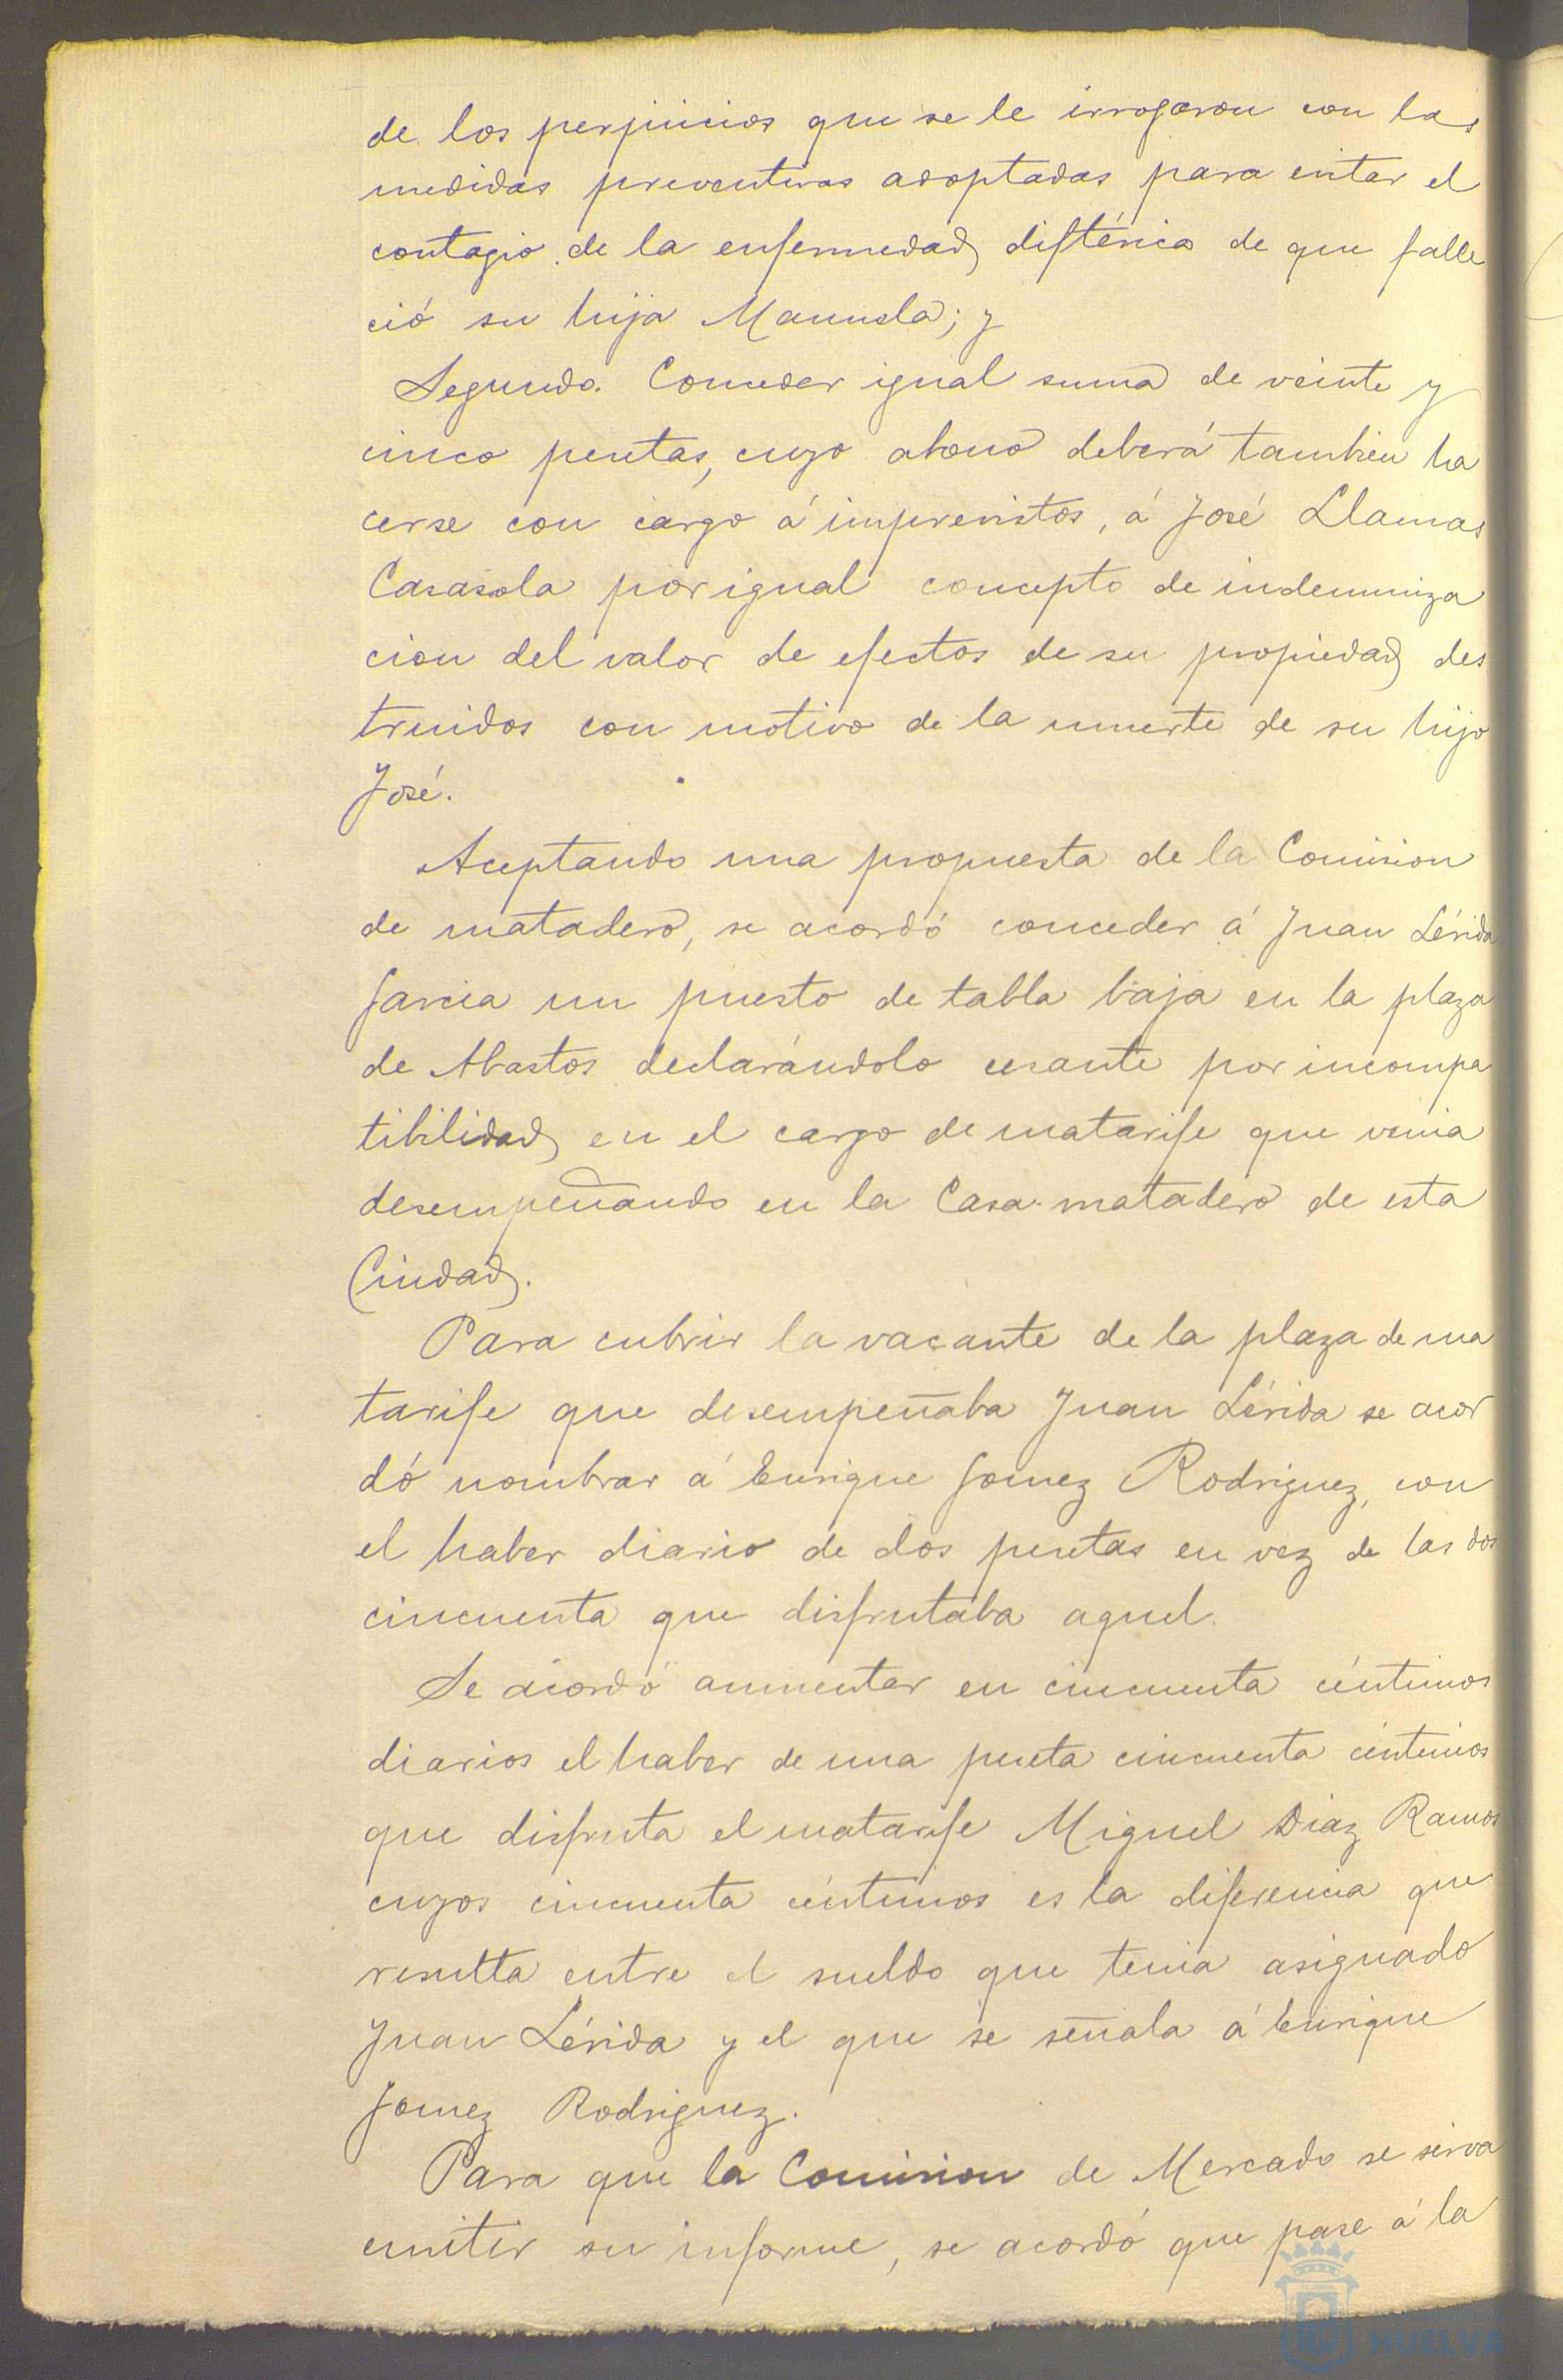 de los perjuicios que se le irrogaron con las
medidas preventivas adoptadas para evitar el
contagio de la enfermedad diftérica de que falle
ció su hija Manuela; y
Segundo. Conceder igual suma de veinte y
cinco pesetas, cuyo abono deberá tambien ha
cerse con cargo á imprevistos, á José Llamas
Casasola por igual concepto de indemniza
cion del valor de efectos de su propiedad des
truidos con motivo de la muerte de su hijo
José.
Aceptando una propuesta de la Comision
de matadero, se acordó conceder á Juan Lérida
Garcia un puesto de tabla baja en la plaza
de Abastos declarándolo cesante por incompa
tibilidad en el cargo de matarife que venia
desempeñando en la Casa-matadero de esta
Ciudad.
Para cubrir la vacante de la plaza de ma
tarife que desempeñaba Juan Lérida se acor
dó nombrar á Enrique Gomez Rodriguez, con
el haber diario de dos pesetas en vez de las dos
cincuenta que disfrutaba aquel.
Se acordó aumentar en cincuenta céntimos
diarios el haber de una peseta cincuenta céntimos
que disfruta el matarife Miguel Diaz Ramos
cuyos cincuenta céntimos es la diferencia que
resulta entre el sueldo que tenia asignado
Juan Lérida y el que se señala á Enrique
Gomez Rodriguez.
Para que la Comision de Mercado se sirva
emitir su informe, se acordó que pase á la
HUELVA